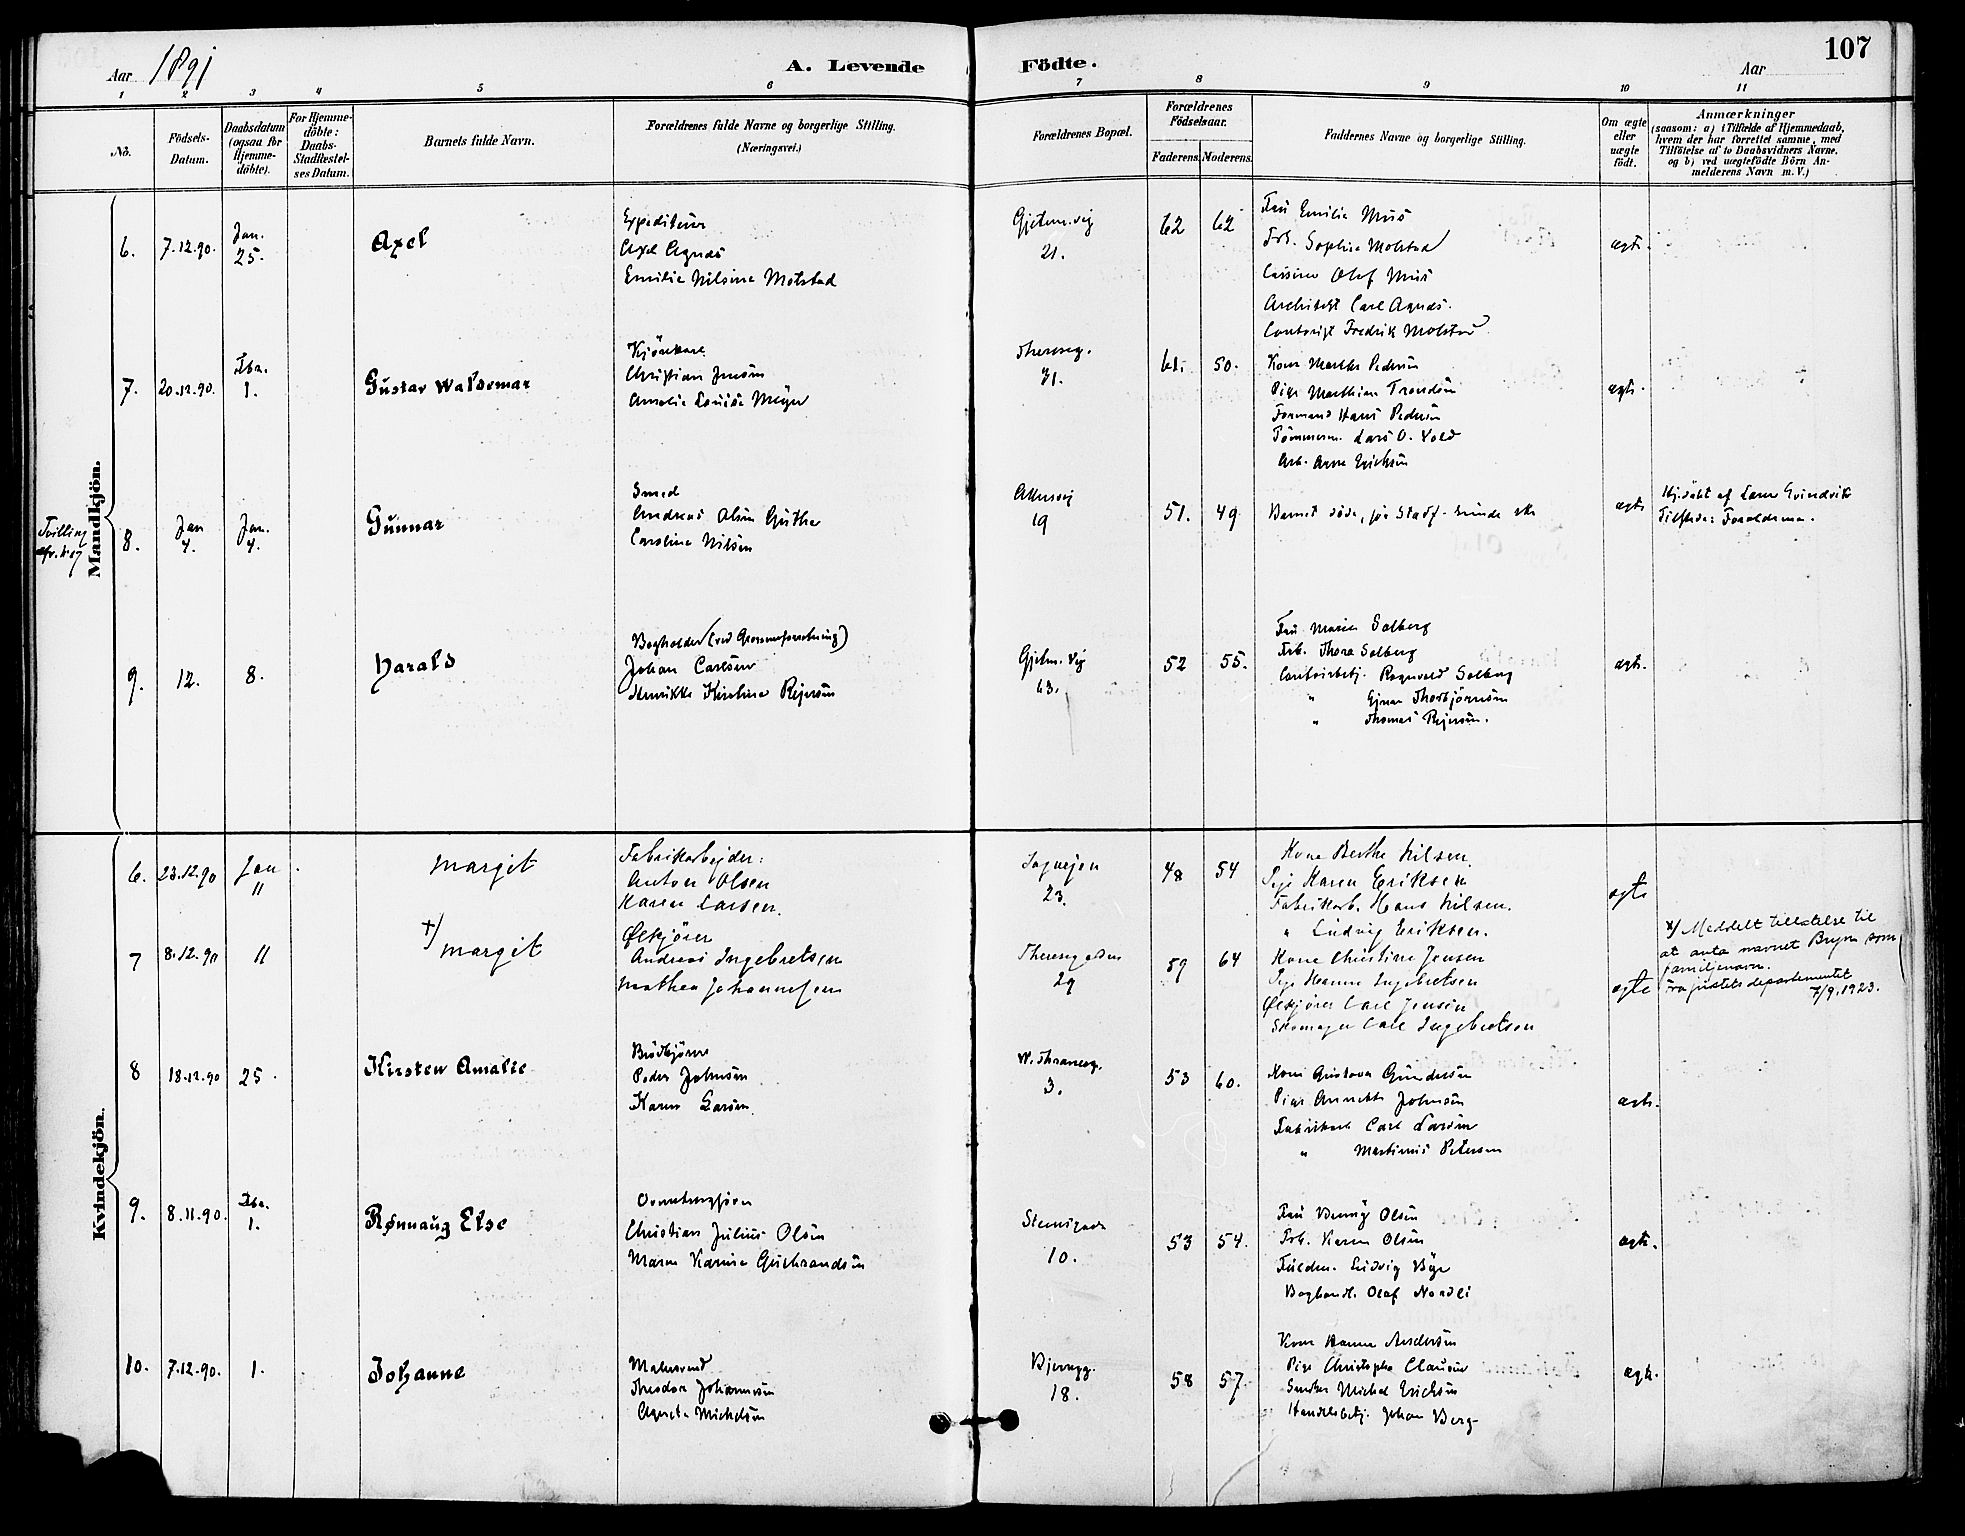 Aar 1891
A. Levende Födte.
107
Aar
1 2 3 4 5 6 7 8 9 10 11
No.
Födsels-Datum.
Daabsdatum (ogsaa for Hjemme-döbte).
For Hjemme-döbte: Daabs-Stadfæstel-ses Datum.
Barnets fulde Navn.
Forældrenes fulde Navne og borgerlige Stilling.
(Næringsvei.)
Forældrenes Bopæl.
Forældrenes Födselsaar.
Faderens. Moderens.
Faddernes Navne og borgerlige Stilling.
Om ægte eller uægte födt.
Anmærkninger
(saasom: a) i Tilfælde af Hjemmedaab,
hvem der har forrettet samme, med
Tilföielse af to Daabsvidners Navne,
og b) ved uægtefödte Börn An-
melderens Navn m. V.)
Mandkjön.
6. 7.12.90. Jan. 25. Axel
Expediteur
Axel Agnæs
Emilie Nilsine Molstad
21.
62 62
Fru Emilie Muus
Frk. Sophie Molstad
Olaf Muus
Architekt Carl Agnæs.
Contorist Fredrik Molstad
ægte.
7. 20.12.90. Fbr. 1. Gustav Waldemar
Christian Jensen
Amalie Louise Meyer
Thereseg.
31.
61. 50.
Kone Marthe Pedersen
Pige Mathien
Formand Hans Pedersen
Tömmerm. Lars O. Vold
Arb. Arne Ericksen
ægte.
Tvilling
8. Jan 4. Jan. 4. Gunnar
Smed
Andreas Olsen
Caroline Nilsen
Akersvej
19
51. 49
Barnet döde, för Stadf.
ægte
Hj.döbt af
Tilstede: Forældrene.
9. 12. 8. Harald
Bogholder
Johan Carlsen
Henrikke Kirstine Rejersen
Gjetem. Vej
63.
52 55.
Fru Marie Solberg
Frk. Thora Solberg
Contorbetj. Ragnvald Solberg
" Ejnar Thorbjörnsen
" Thomas Rejersen.
ægte.
Kvindekjön.
6. 23.12.90 Jan 11 Margit
Fabrikarbejder:
Anton Olsen
Karen Larsen.
23.
48 54
Kone Berthe Nilsen.
Pige Karen Eriksen
Fabrikarb. Hans Nilsen.
" Ludvig Eriksen.
ægte
7 8.12.90 11 x) Margit
Ølkjører
Andreas Ingebretsen
Mathea Johannesen
Theresegaden
29
59 64
Kone Christine Jensen
Pige Hanna Ingebretsen
Ølkjører Carl Jensen
Skomager Carl Ingebretsen
ægte
x) Meddelt tillatelse til
at anta navnet Bryn som
familjenavn.
Fra justitsdepartementet
7/9.1923.
8 18.12.90 25. Kirsten Amalie
Brödkjörer
Peder Johnsen
Karen Larsen.
W. Thranesg.
3.
53 60.
Kone Gustava Gundersen
Pige Annette Johnsen
Fabrikarb Carl Larsen
" Martinus Petersen
ægte.
9. 8.11.90. Fbr. 1. Rønnaug Else
Christian Julius Olsen
Maren Karine Gulbrandsen
10.
53 54.
Fru Olsen
Frk. Karen Olsen
Ludvig
Boghandl. Olaf Nordli
ægte.
10. 7.12.90. 1. Johanne
Malersvend
Theodor Johannesen
Agnete Michelsen
Bjerregg.
18.
58 57
Kone Hanna Andersen
Pige Christopha Clausen
Snedker Michel Ericksen
Handelsbetj. Johan Berg
ægte.